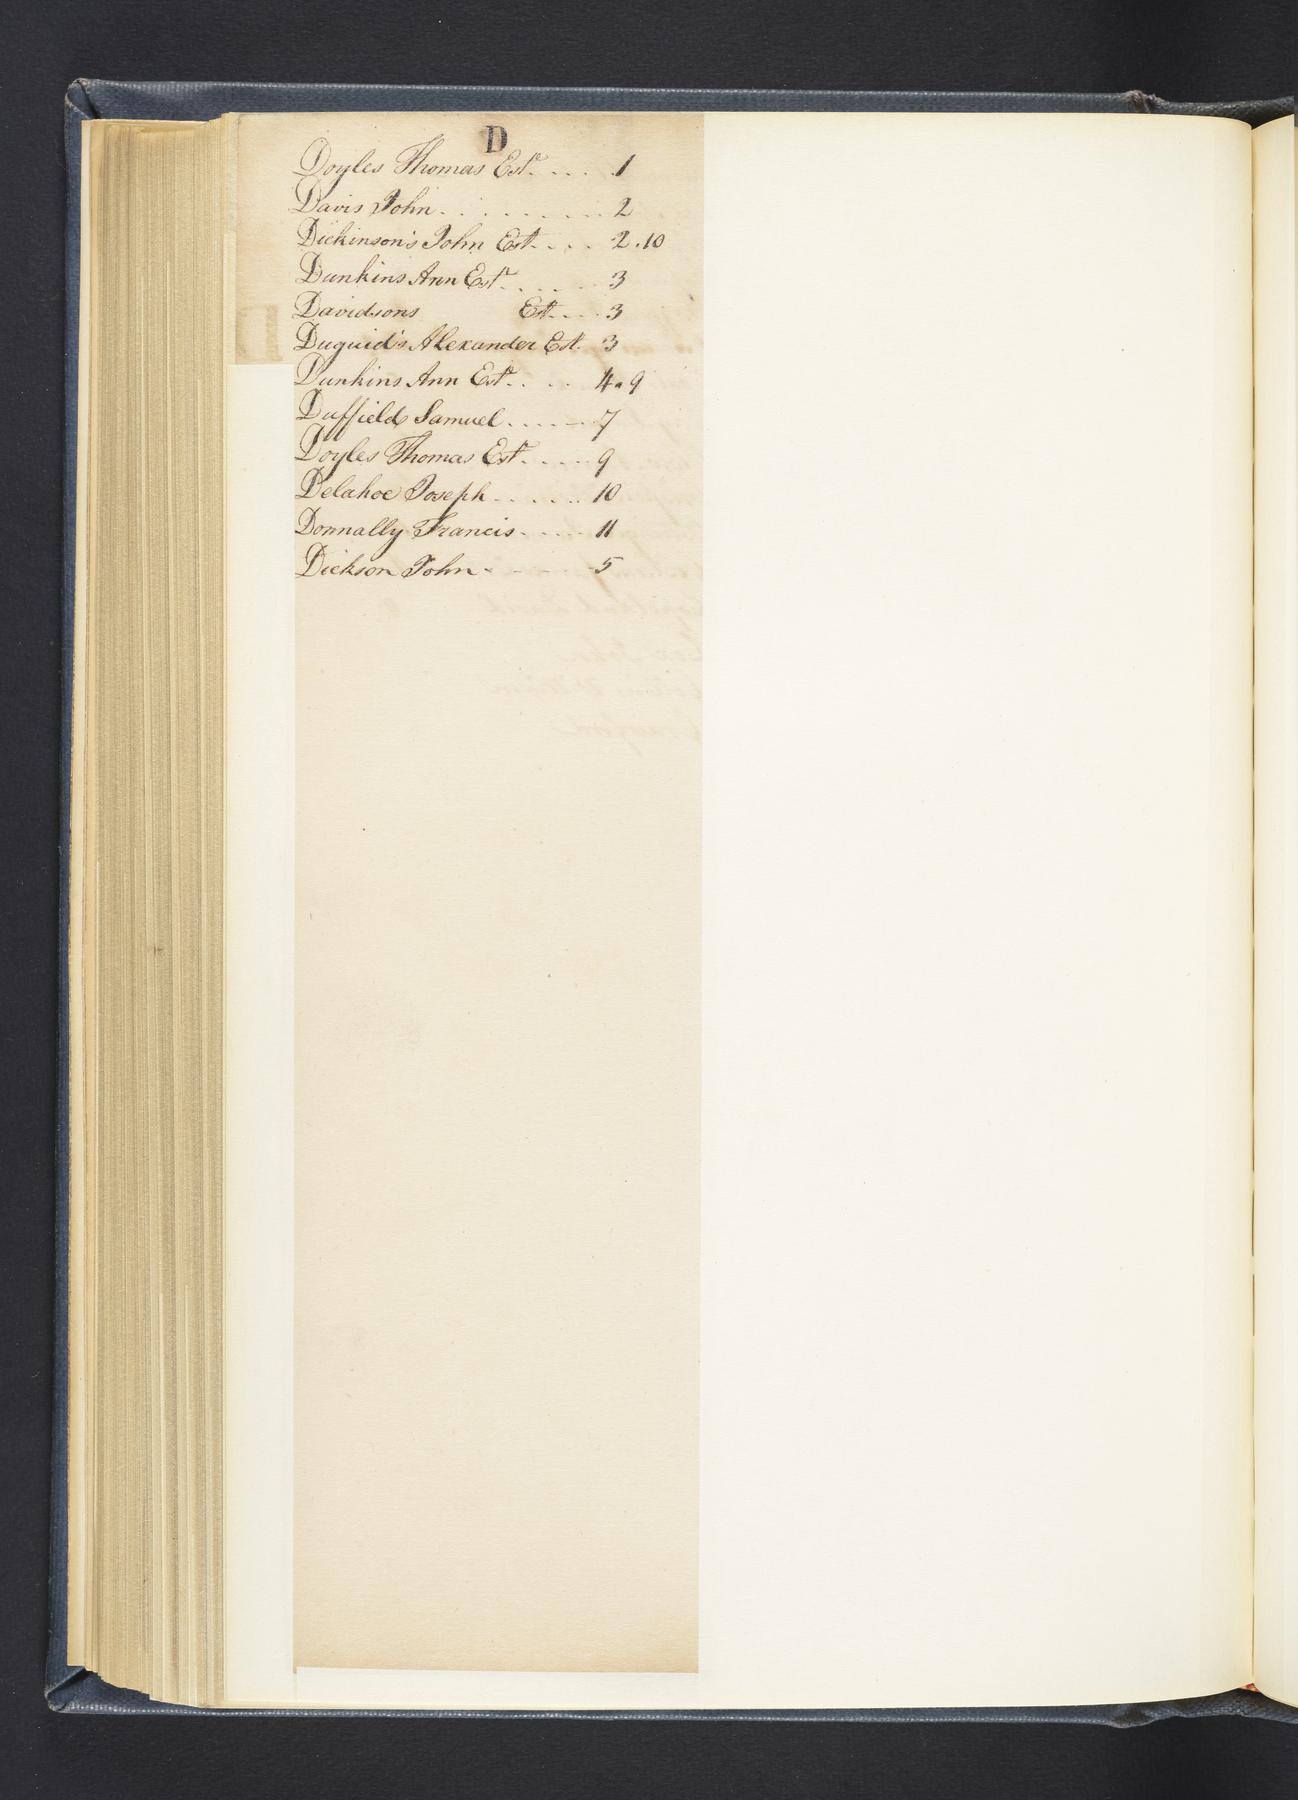 D
Doyles Thomas Est. .... 1
Davis John ......... 2
Dickinson's John Est. ... 2.10
Dunkins Ann Est. ..... 3
Davidsons Est. ... 3
Duguid's Alexander Est. 3
Dunkins Ann Est. ... 4.9
Duffield Samuel ...... 7
Doyles Thomas Est. .... 9
Delahoe Joseph ...... 10
Donnally Francis ..... 11
Dickson John - - - - 5